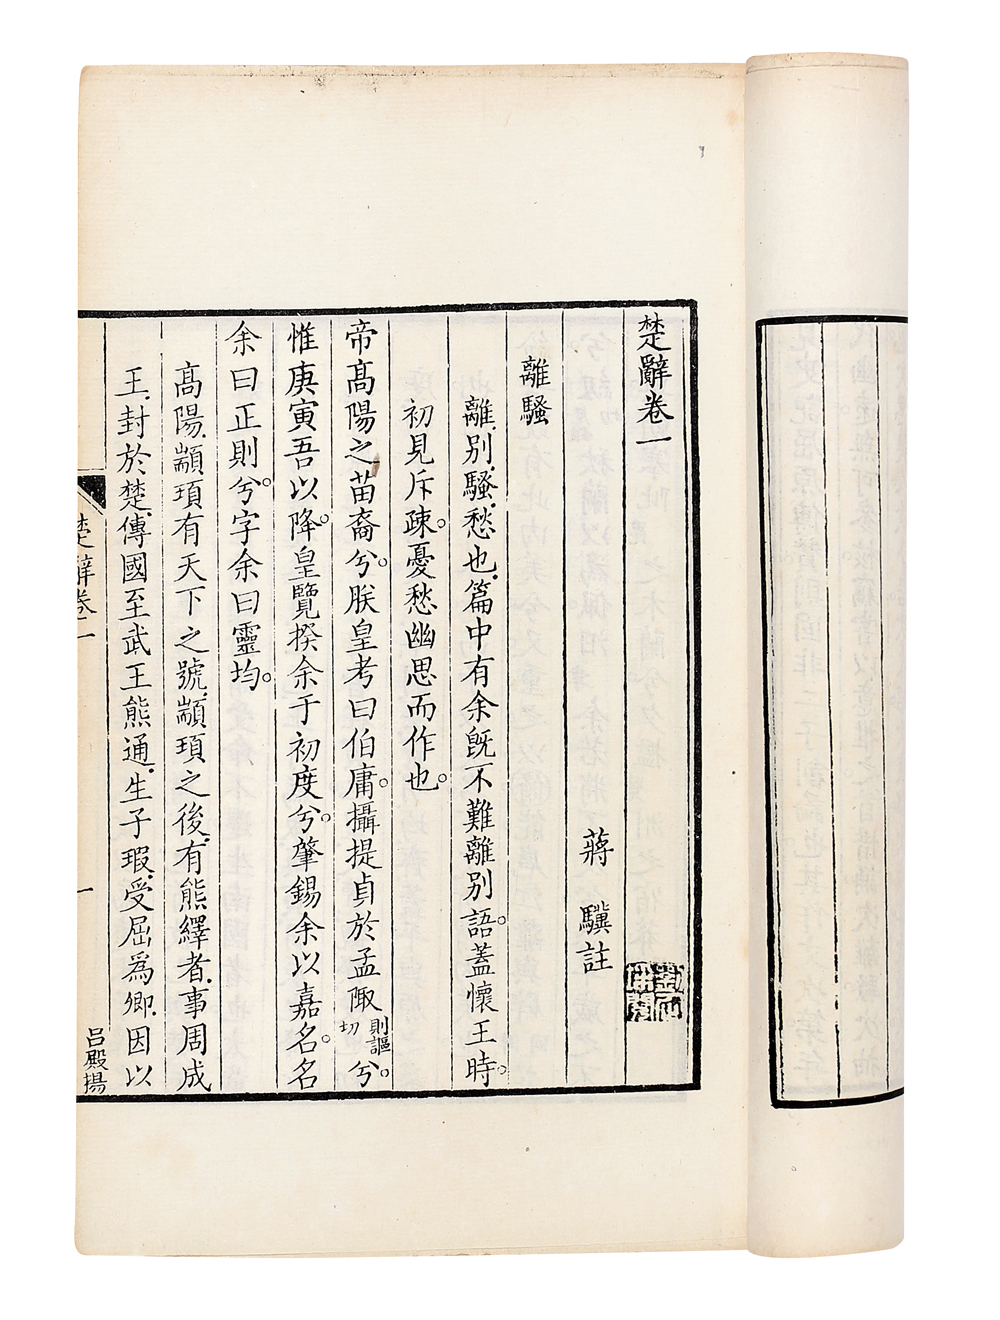 楚辭卷一
蔣驥註
離騷
離別騷愁也篇中有余旣不難離別語蓋懷王時
初見斥疎憂愁幽思而作也
帝髙陽之苗裔兮朕皇考曰伯庸攝提貞於孟陬則謳切兮
惟庚寅吾以降皇覽揆余于初度兮肇錫余以嘉名名
余曰正則兮字余曰靈均
髙陽顓頊有天下之號顓頊之後有熊繹者事周成
王封於楚傳國至武王熊通生子瑕受屈爲卿因以
楚辭卷一
一
呂殿揚